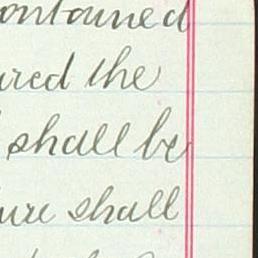 ontained
ured the
shall be
ure shall